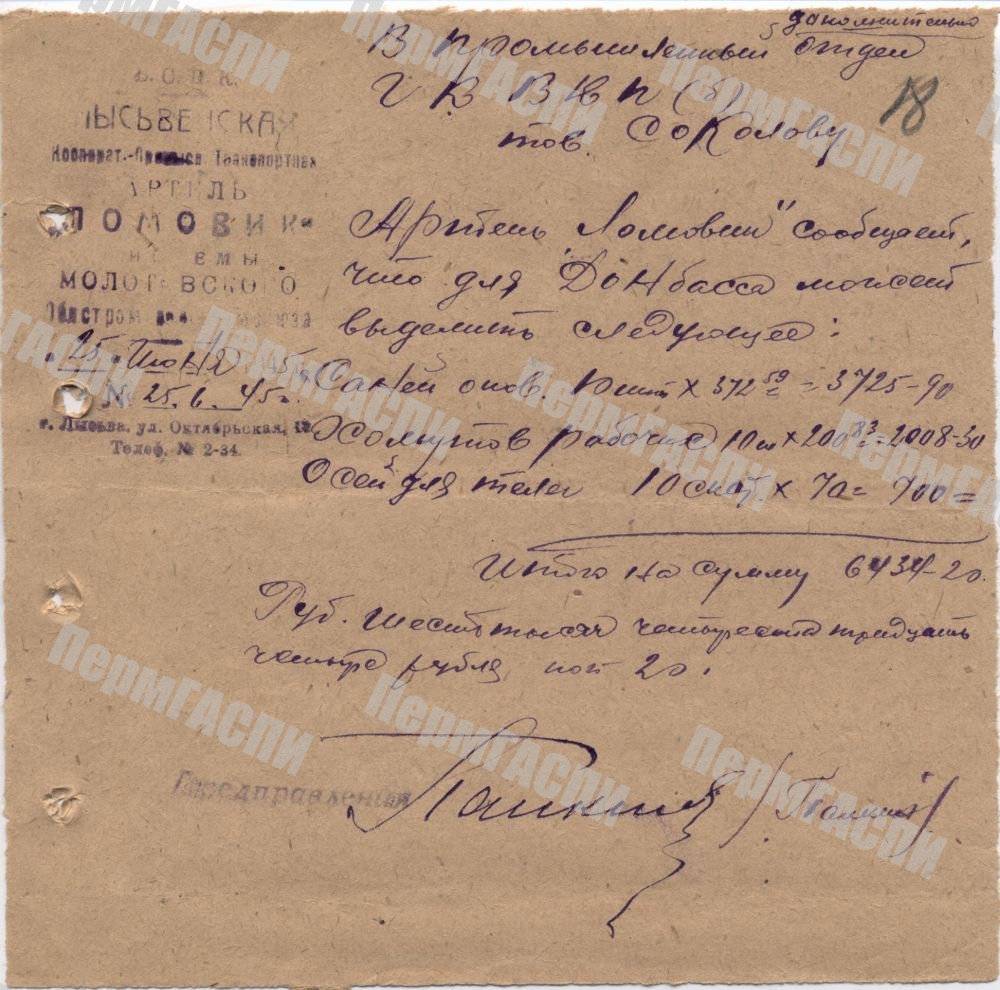 дополнительно
В промышленный отдел
ГК ВКП(б)
тов. Соколову
18
В.С.П.К.
ЛЫСЬВЕНСКАЯ
Кооперат.-Промысл. Транспортная
АРТЕЛЬ
„ЛОМОВИК“
системы
МОЛОТОВСКОГО
„25“ Июня 45г.
№ 25.6.45г.
г. Лысьва, ул. Октябрьская, 12
Телеф. № 2-34.
Артель „Ломовик" сообщает,
что для Донбасса может
выделить следующее:
Саней 10 шт х 372 59 = 3725-90
Хомутов рабочих 10 шт х 200 83 = 2008-30
Осей для телег 10 скат. х 70 = 700=
Итого на сумму 6434-20.
Руб. Шесть тысяч четыреста тридцать
четыре рубля, коп 20.
Предправления
ПермГАСПИ